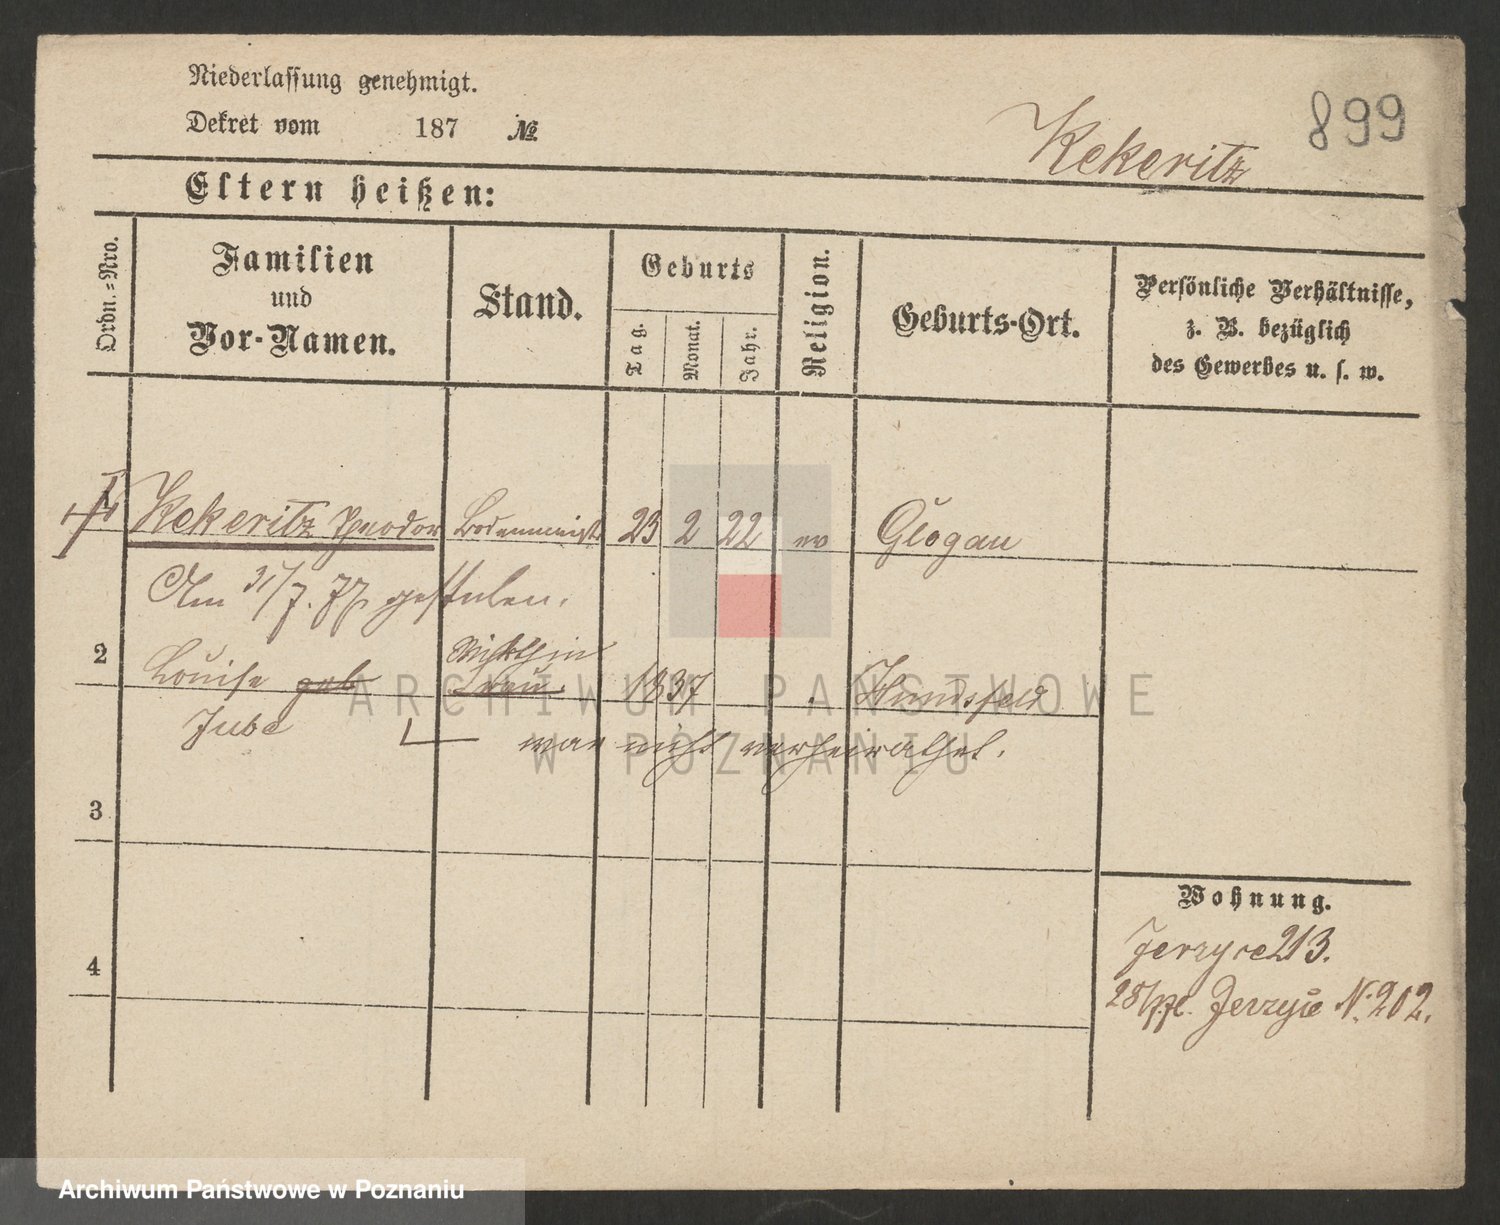 Niederlassung genehmigt.
Dekret vom 187 №
Kekeritz
899
Eltern heißen:
Ordn.=Nro.
Familien
und
Vor-Namen.
Stand.
Geburts
Tag.
Monat.
Jahr.
Religion.
Geburts-Ort.
Persönliche Verhältnisse,
z. B. bezüglich
des Gewerbes u. s. w.
1 Kekeritz Theodor 23 2 22 ev Glogau
Am 31/7. 77 gestorben.
2 Louise geb 1837 Hundsfeld
Jube
war nicht verheirathet.
3
4
Wohnung.
Jerzyce 213.
Jerzyce N. 202.
ARCHIWUM PAŃSTWOWE
W POZNANIU
Archiwum Państwowe w Poznaniu